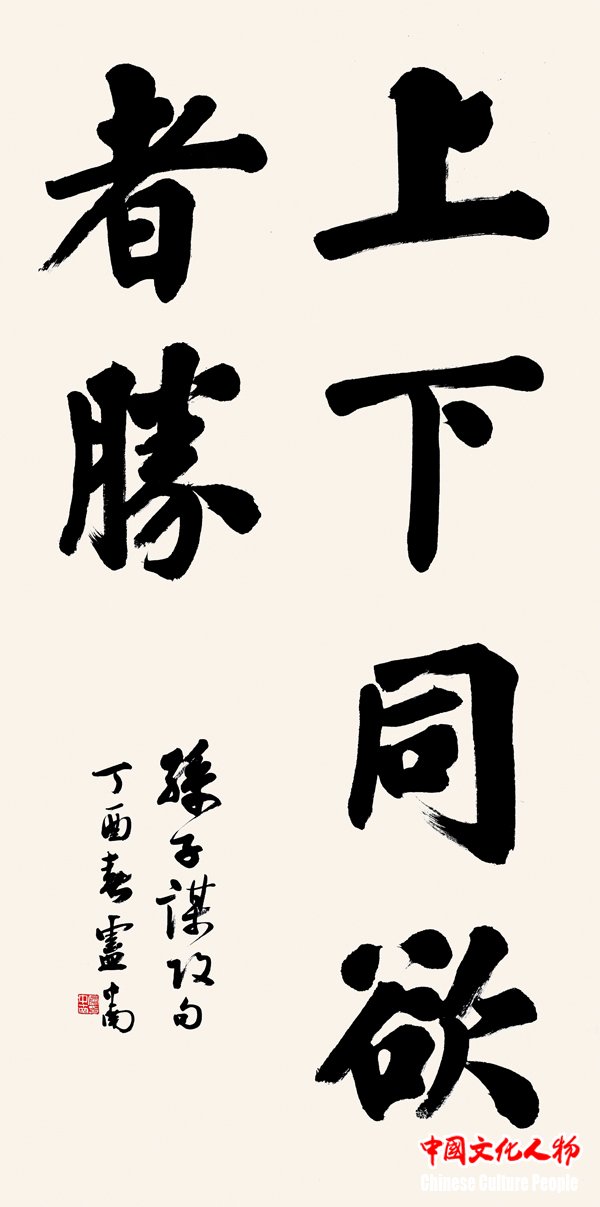 上下同欲
者勝
孫子謀攻句
丁酉春盧中南
中國文化人物
Chinese Culture People